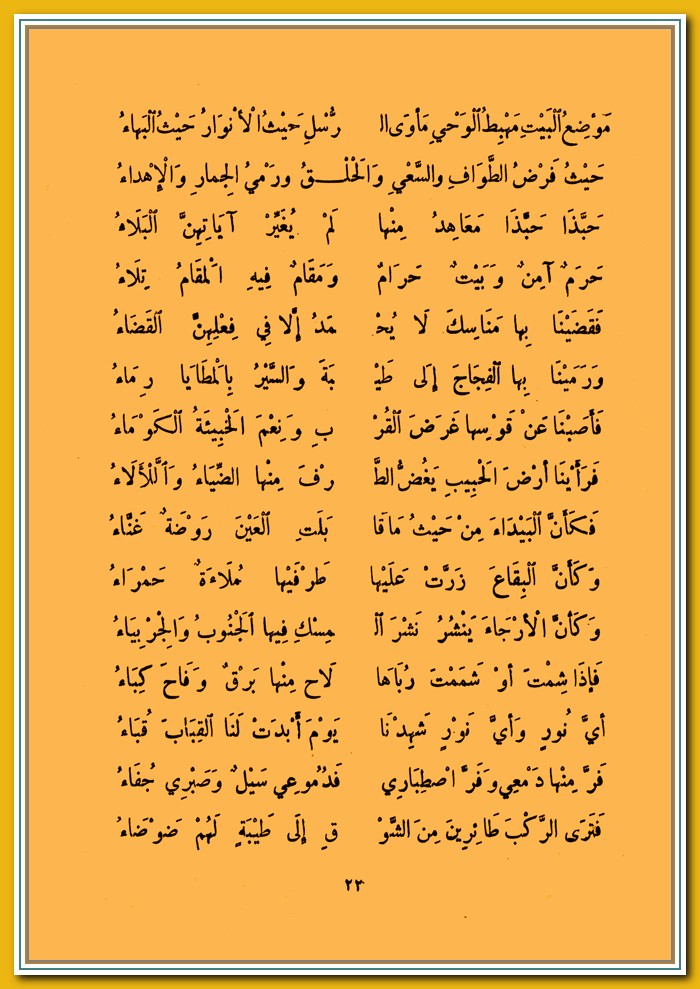 مَوْضِعُ ٱلْبَيْتِ مَهْبِطُ ٱلْوَحْيِ مَأْوَى ال رُّسْلِ حَيْثُ الْأَنْوَارُ حَيْثُ ٱلْبَهَاءُ
حَيْثُ فَرْضُ الطَّوَافِ والسَّعْيِ وَالْحَلْـــقُ ورَمْيُ الجِمارِ وَالْإِهْداءُ
حَبَّذَا حَبَّذَا مَعَاهِدُ مِنْها لَمْ يُغَيِّرْ آيَاتِهِنَّ ٱلْبَلَاءُ
حَرَمٌ آمِنٌ وَبَيْتٌ حَرَامٌ وَمَقَامٌ فِيهِ الْمُقَامُ تِلَاءُ
فَقَضَيْنَا بِها مَنَاسِكَ لَا يُحْـ ـمَدُ إِلَّا فِي فِعْلِهِنَّ ٱلْقَضَاءُ
وَرَمَيْنَا بِها ٱلْفِجَاجَ إِلَى طَيْـ ـبَةَ وَالسَّيْرُ بِالْمَطَايَا رِمَاءُ
فَأَصَبْنَا عَنْ قَوْسِها غَرَضَ ٱلْقُرْ بِ وَنِعْمَ الْخَبِيئَةُ ٱلْكَوْمَاءُ
فَرَأَيْنَا أَرْضَ الْحَبِيبِ يَغُضُّ الطَّـ ـرْفَ مِنْها الضِّيَاءُ وَٱللَّأْلَاءُ
فَكَأَنَّ ٱلْبَيْدَاءَ مِنْ حَيْثُ مَا قَا بَلَتِ ٱلْعَيْنَ رَوْضَةٌ غَنَّاءُ
وَكَأَنَّ ٱلْبِقَاعَ زَرَّتْ عَلَيْها طَرْفَيْها مُلَاءَةٌ حَمْرَاءُ
وَكَأَنَّ الْأَرْجَاءَ يَنْشُرُ نَشْرَ ٱلْـ ـمِسْكِ فِيها ٱلْجَنُوبُ وَالْجِرْبِيَاءُ
فَإِذَا شِمْتَ أَوْ شَمَمْتَ رُبَاهَا لَاحَ مِنْها بَرْقٌ وَفَاحَ كِبَاءُ
أَيَّ نُورٍ وَأَيَّ نَوْرٍ شَهِدْنَا يَوْمَ أَبْدَتْ لَنَا ٱلْقِبَابَ قُبَاءُ
فَرَّ مِنْها دَمْعِي وَفَرَّ اصْطِبَارِي فَدُمُوعِي سَيْلٌ وَصَبْرِي جُفَاءُ
فَتَرَى الرَّكْبَ طَائِرِينَ مِنَ الشَّوْ قِ إِلَى طَيْبَةٍ لَهُمْ ضَوْضَاءُ
٢٣